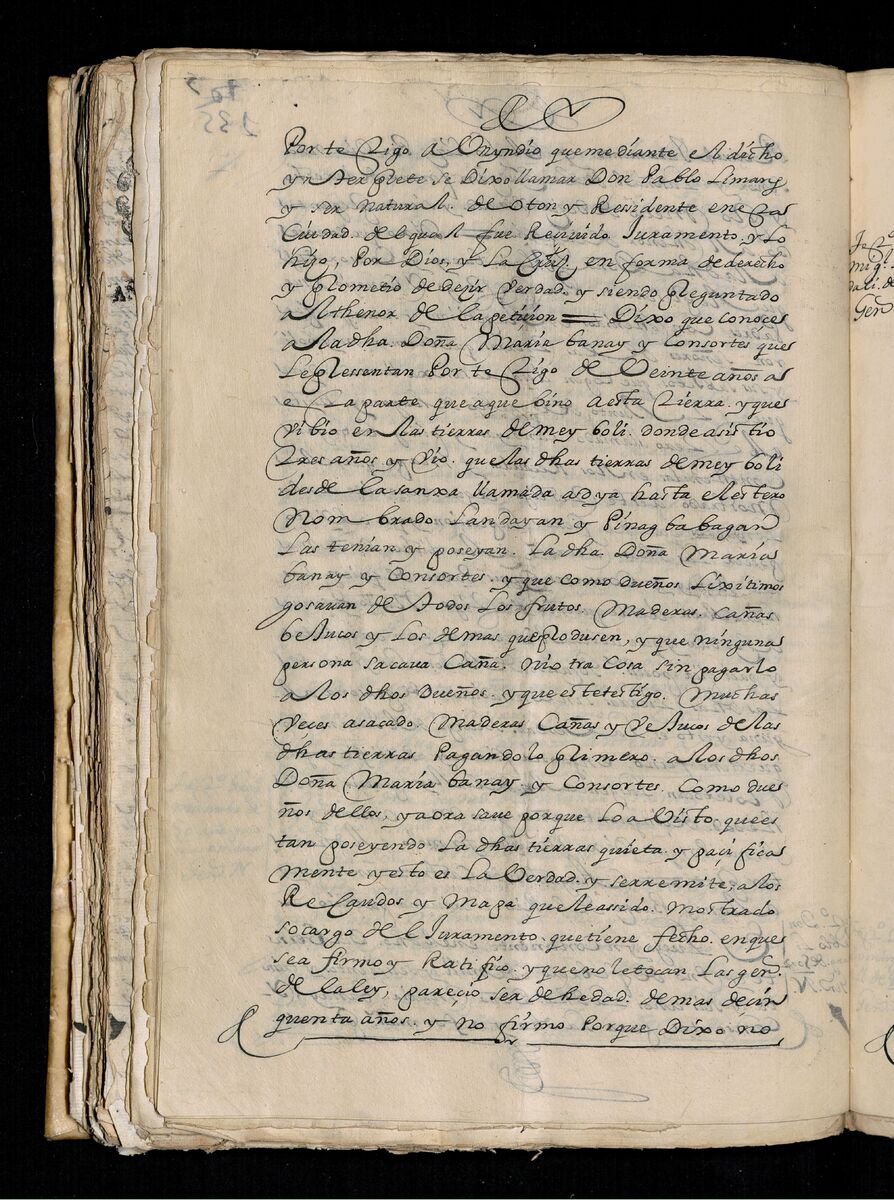 Por testigo a Un yndio que mediante el dicho
ynterplete se Dixo llamar Don Pablo Limang
y ser natural. de oton y Ressidente en estas
Ciudad. del qual fue Reciuido Juramento. y Lo
hizo, Por Dios, y La Cruz, en forma de derecho
y plometio de dezir Verdad. y siendo pleguntado
al thenor de la peticion = Dixo que conoces
a la dha. Doña Maria banay y Consortes que
Le plessentan Por testigo de Veinte años a
esta parte que a que bino a esta tierra. y que
vibio en las tierras de mey boli. donde asistio
tres años y vio. que las dhas tierras de mey boli
desde la sanxa llamada asdya hasta el estero
Nombrado Landayan y Pinagbabagan
Las tenian y poseyan. La dha. Doña Maria
banay y Consortes. y que como dueños Lixitimos
gosauan de todos Los frutos. Maderas. Cañas
beJucos y Los demas que plodusen, y que ninguna
persona sacaua Caña. ni otra Cosa sin pagarlo
a los dhos Dueños. y que este testigo. Muchas
Veces a sacado Maderas Cañas y VeJucos de las
dhas tierras Pagandolo plimero. a los dhos
Doña Maria banay. y Consortes. Como due
ños dellos, y aora saue porque Lo a Visto, que es
tan poseyendo La dhas tierras quieta. y pacifica
Mente y esto es La Verdad. y se rremite, a los
Recaudos y Mapa que le a ssido. Mostrado
so cargo del Juramento. que tiene fecho. en que
se a firmo y Ratifico. y que no le tocan Las gen.
de la ley, parecio ser de hedad. de mas de cin
quenta años. y no firmo Porque Dixo no